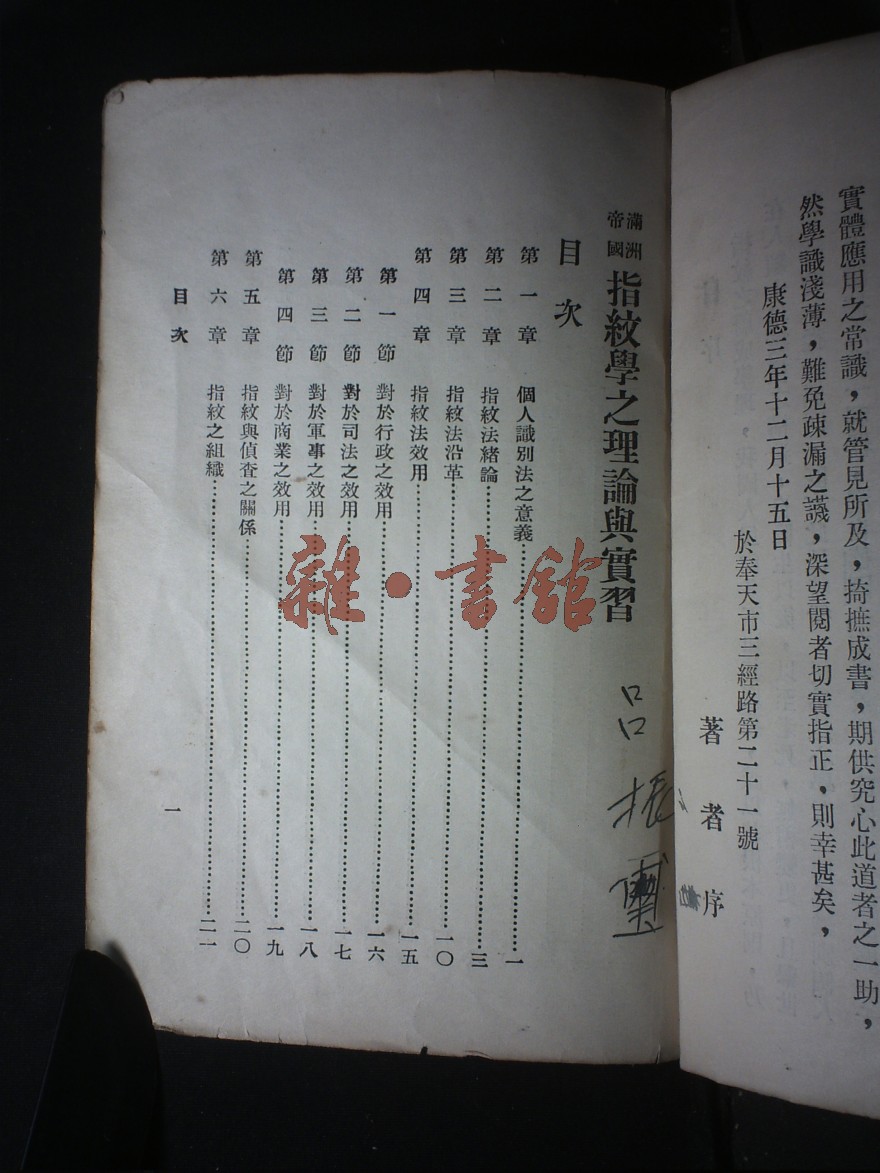 實體應用之常識，就管見所及，掎摭成書，期供究心此道者之一助，
然學識淺薄，難免疎漏之譏，深望閱者切實指正，則幸甚矣，
康德三年十二月十五日
於奉天市三經路第二十一號
著者序
滿洲帝國 指紋學之理論與實習
呂振
目次
第一章 個人識別法之意義 一
第二章 指紋法緒論 三
第三章 指紋法沿革 一〇
第四章 指紋法效用 一五
第一節 對於行政之效用 一六
第二節 對於司法之效用 一七
第三節 對於軍事之效用 一八
第四節 對於商業之效用 一九
第五章 指紋與偵查之關係 二〇
第六章 指紋之組織 二一
目次
一
雜·書館